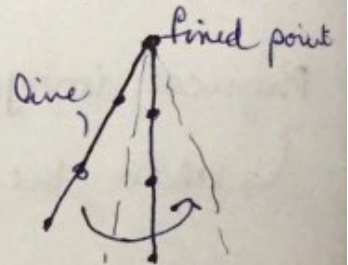 fixed point
line